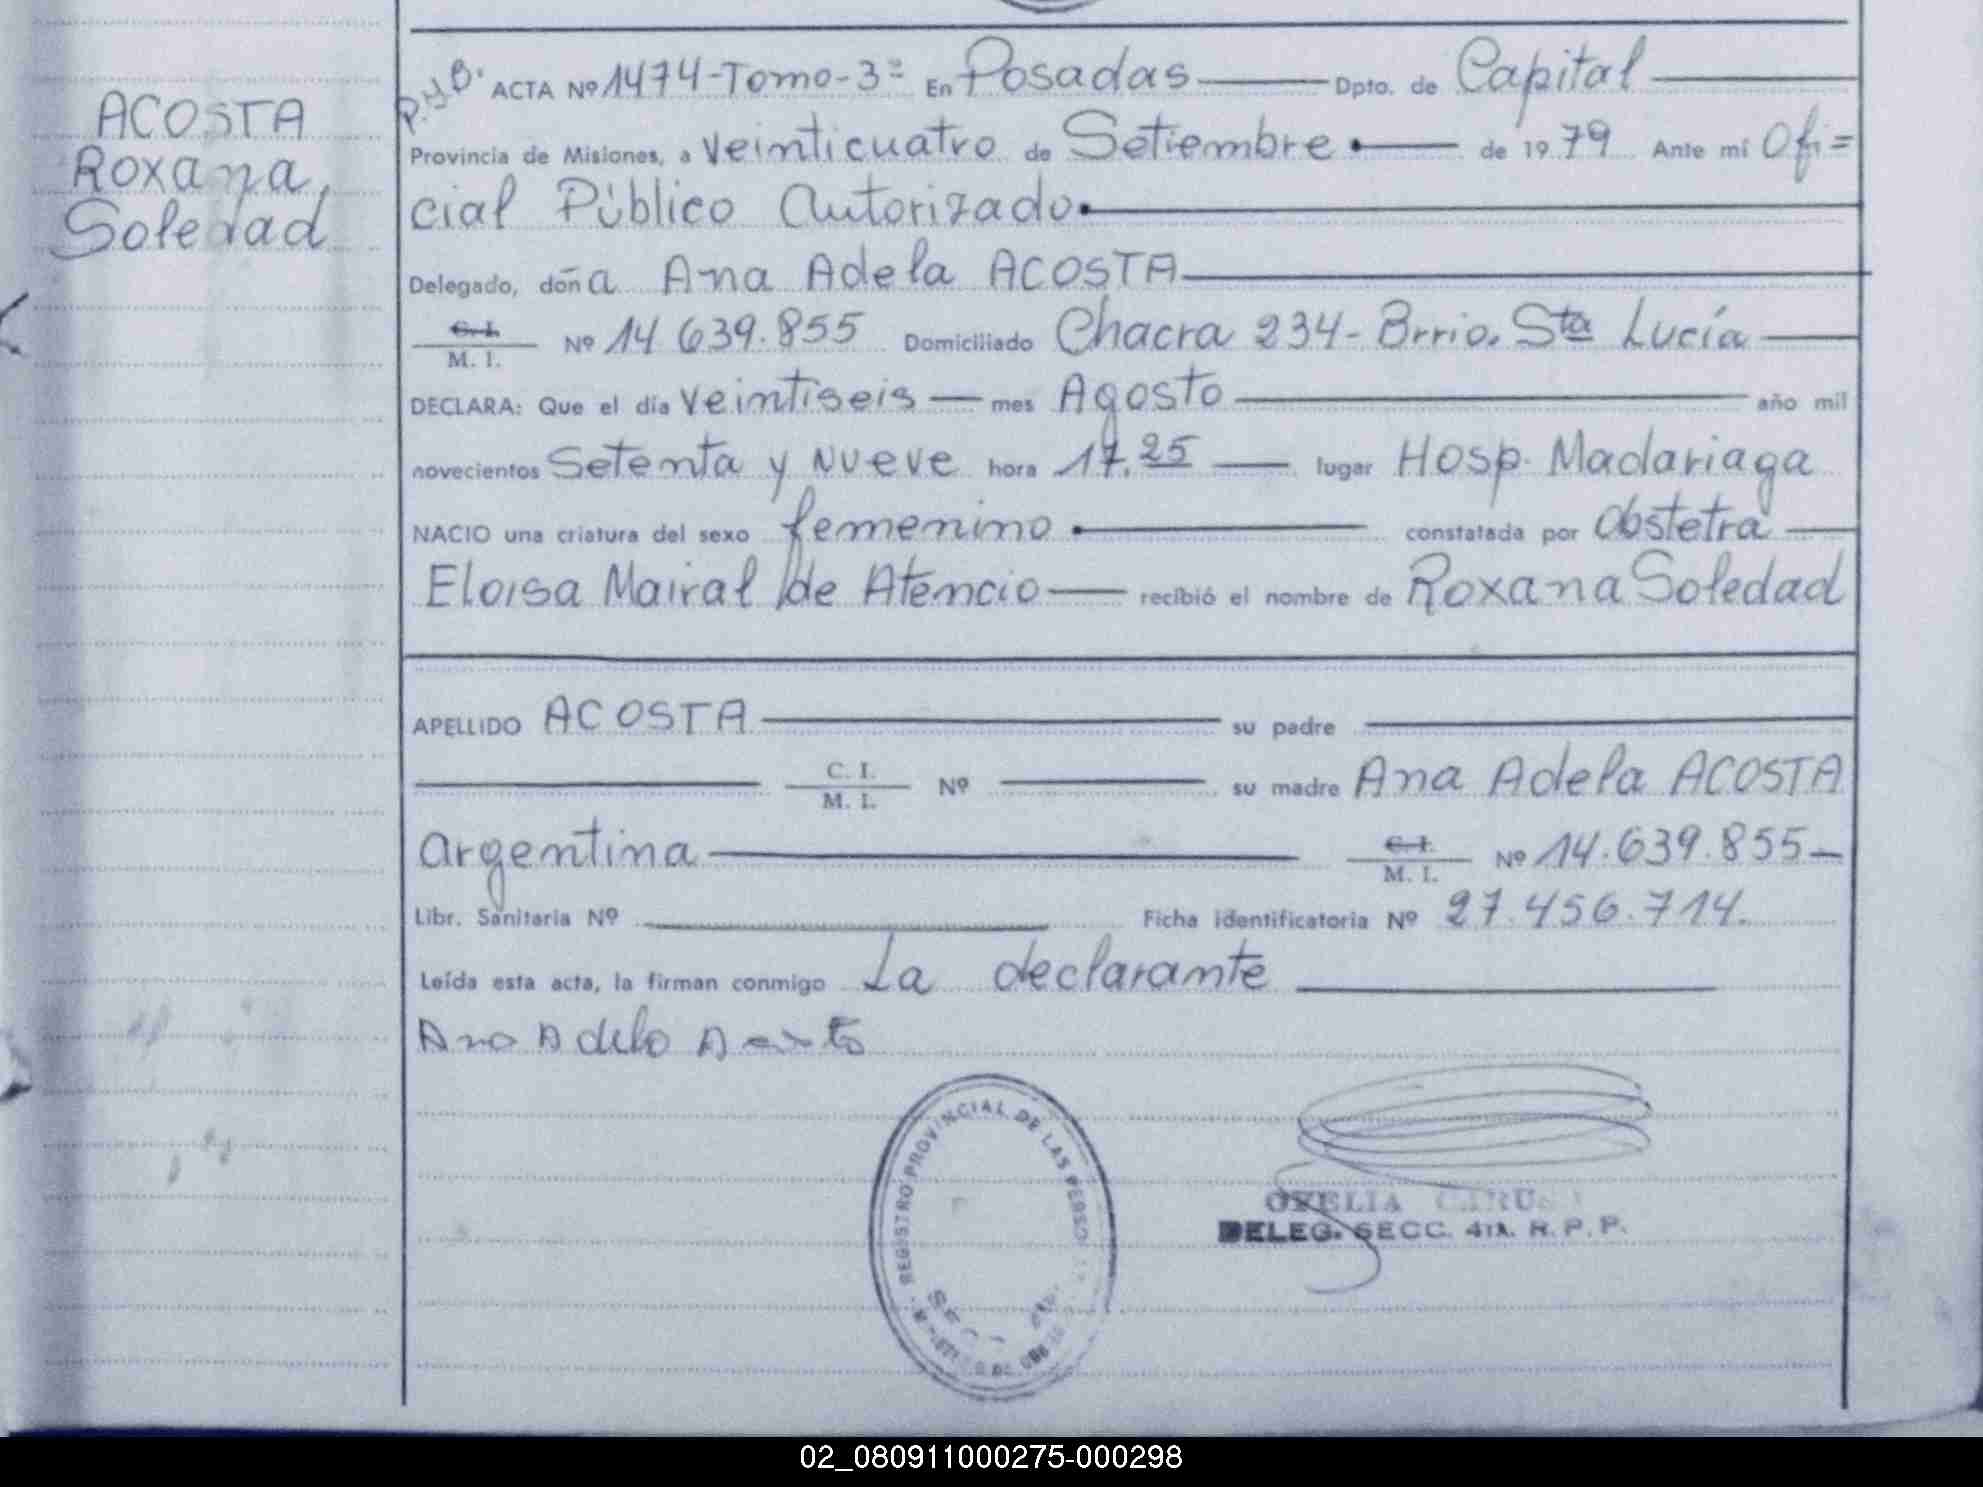 ACOSTA
Roxana,
Soledad
P.y.B. ACTA Nº 1474-Tomo-3º En Posadas Dpto. de Capital
Provincia de Misiones, a veinticuatro de Setiembre de 1979 Ante mí Ofi=
cial Público Autorizado
Delegado, doña Ana Adela ACOSTA
C. I.
M. I. Nº 14.639.855 Domiciliado Chacra 234-Brrio. Sta Lucía
DECLARA: Que el día veintiseis mes Agosto año mil
novecientos Setenta y nueve hora 17.25 lugar Hosp. Madariaga
NACIO una criatura del sexo femenino constatada por Obstetra
Eloisa Mairal de Atencio recibió el nombre de Roxana Soledad
APELLIDO ACOSTA su padre
C. I.
M. I. Nº su madre Ana Adela ACOSTA
argentina C. I.
M. I. Nº 14.639.855-
Libr. Sanitaria Nº Ficha identificatoria Nº 27.456.714.
Leída esta acta, la firman conmigo La declarante
Ana Adela Acosta
REGISTRO PROVINCIAL DE LAS PERSO
OFELIA
DELEG. SECC. 4TA. R. P. P.
02_080911000275-000298